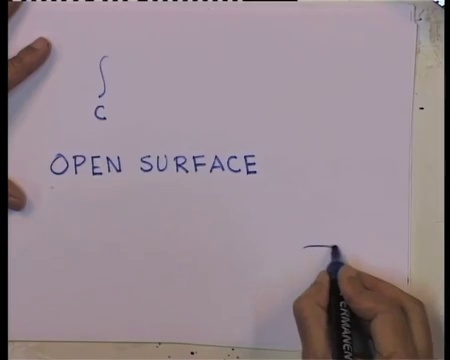 ∫
C
OPEN SURFACE
PERMANEN